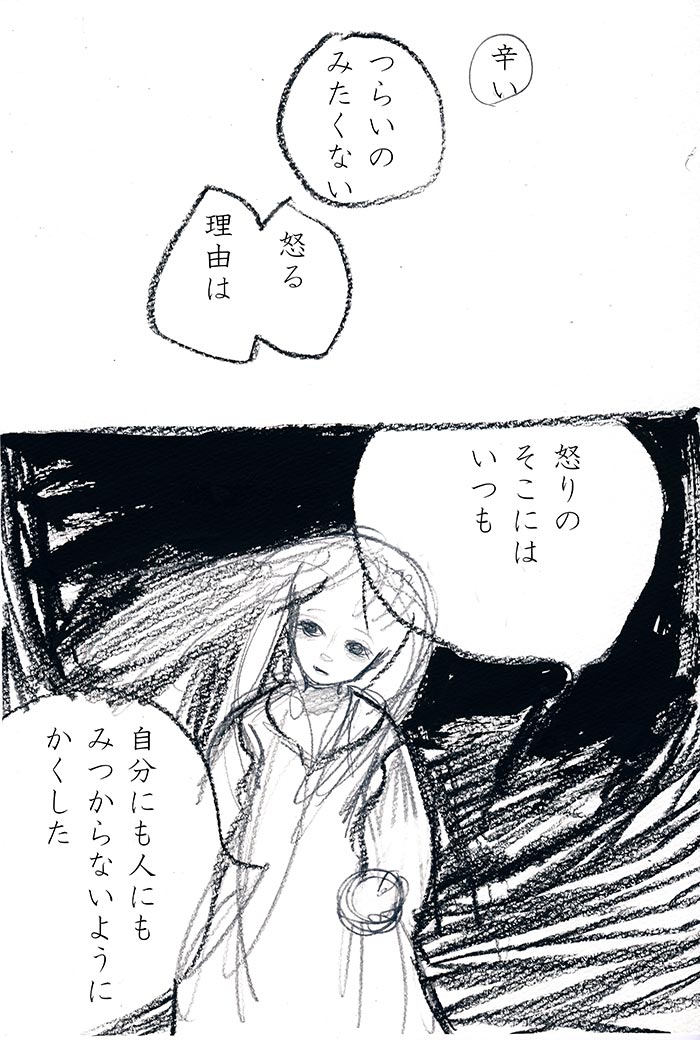 辛い
つらいの
みたくない
怒る
理由は
怒りの
そこには
いつも
自分にも人にも
みつからないように
かくした